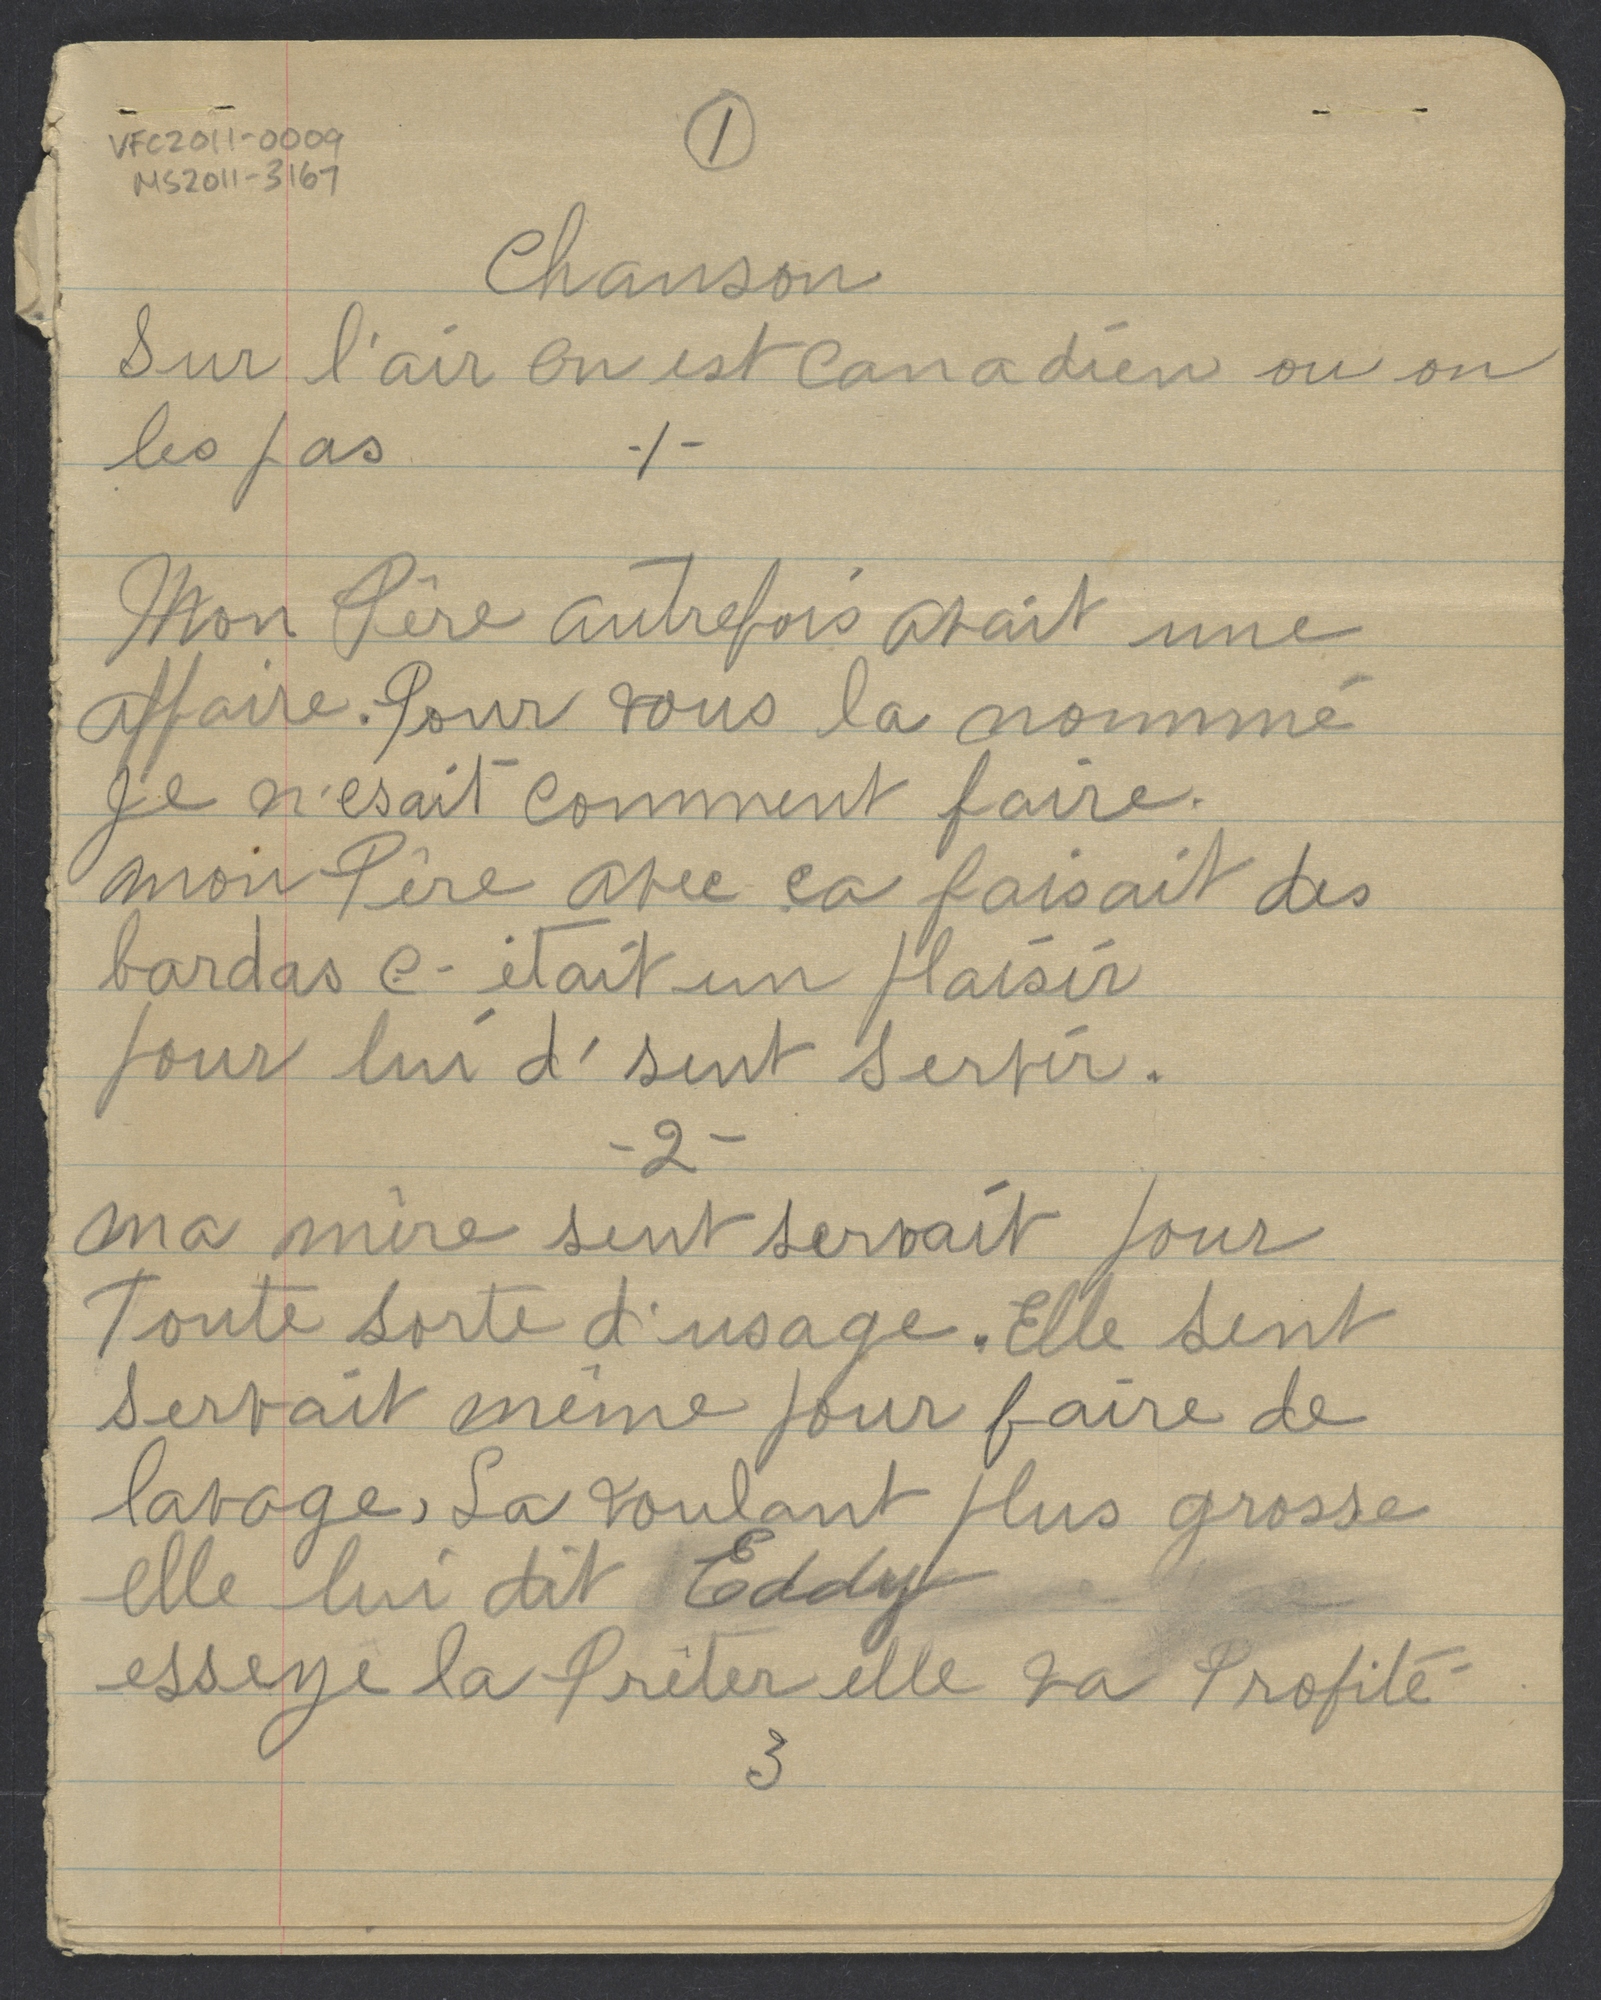 VFC2011-0009
MS2011-3167
1
Chanson
Sur l'air on est Canadien ou on
les pas -1-
Mon Père autrefois avait une
affaire. Pour vous la nommmé
Je n'esait comment faire.
mon Père avec ça faisait des
bardas c- était un plaisir
pour lui d' sent servir.
-2-
ma mère sent servait pour
Toute sorte d'usage. Elle sent
servait même pour faire de
lavage, La voulant plus grosse
elle lui dit Eddy
esseye la Prêter elle va Profité
3